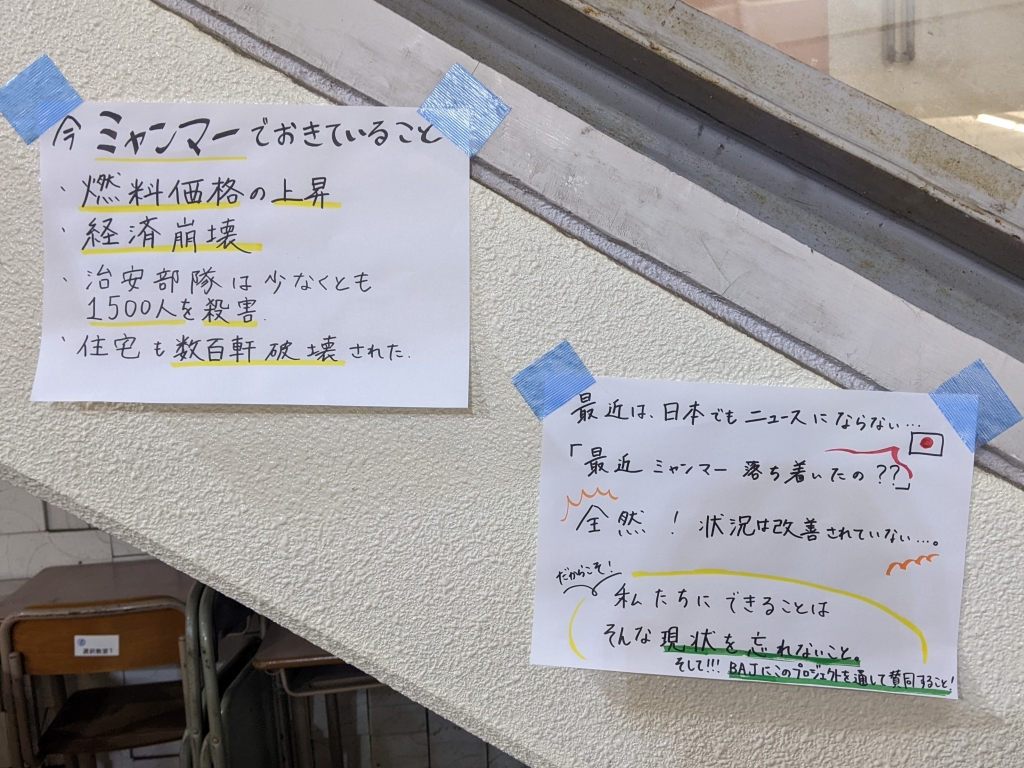 今 ミャンマーでおきていること
・燃料価格の上昇
・経済崩壊
・治安部隊は少なくとも
1500人を殺害.
・住宅も数百軒破壊された.
最近は、日本でもニュースにならない…
「最近ミャンマー落ち着いたの??」
全然! 状況は改善されていない…。
だからこそ!
私たちにできることは
そんな現状を忘れないこと。
そして!!! BAJにこのプロジェクトを通して賛同すること!
選択教室1